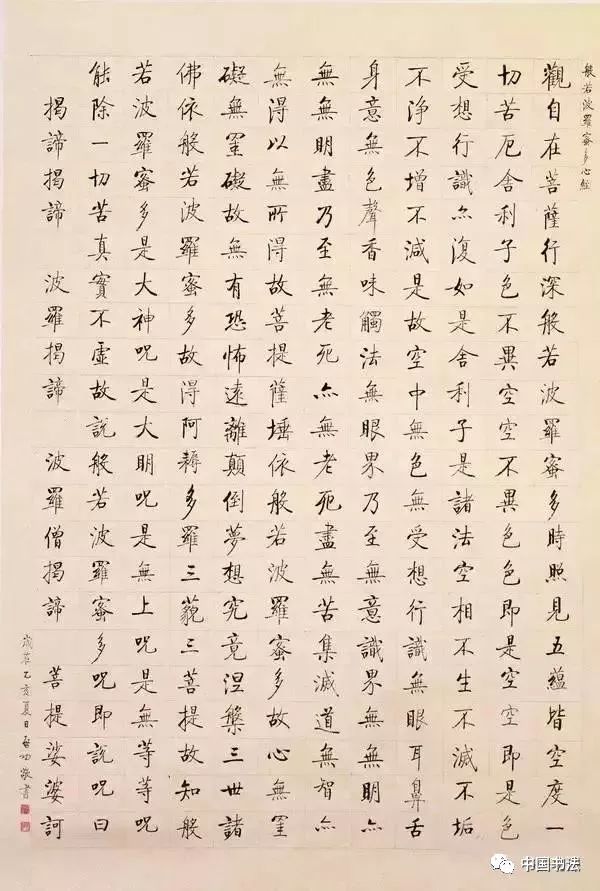 般若波羅蜜多心經
觀自在菩薩行深般若波羅蜜多時照見五蘊皆空度一
切苦厄舍利子色不異空空不異色色即是空空即是色
受想行識亦復如是舍利子是諸法空相不生不滅不垢
不淨不增不減是故空中無色無受想行識無眼耳鼻舌
身意無色聲香味觸法無眼界乃至無意識界無無明亦
無無明盡乃至無老死亦無老死盡無苦集滅道無智亦
無得以無所得故菩提薩埵依般若波羅蜜多故心無罣
礙無罣礙故無有恐怖遠離顛倒夢想究竟涅槃三世諸
佛依般若波羅蜜多故得阿耨多羅三藐三菩提故知般
若波羅蜜多是大神呪是大明呪是無上呪是無等等呪
能除一切苦真實不虛故說般若波羅蜜多呪即說呪曰
揭諦揭諦 波羅揭諦 波羅僧揭諦 菩提娑婆訶
歲 乙亥夏日啟功敬書
中国书法